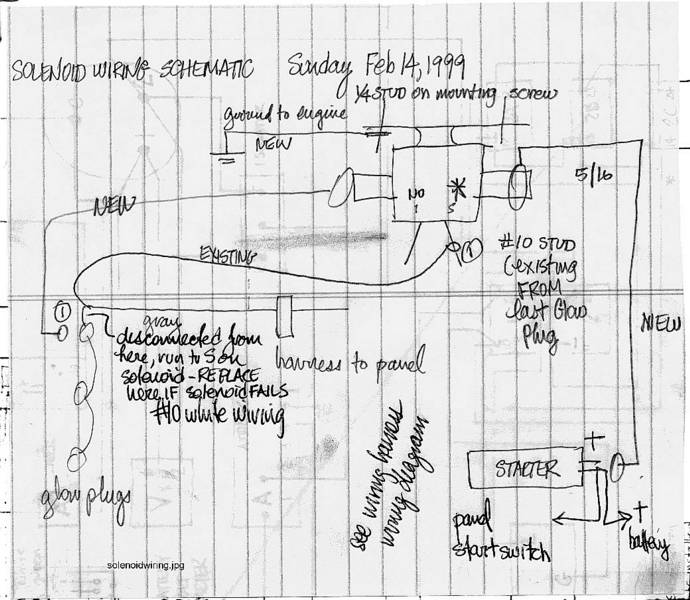 SOLENOID WIRING SCHEMATIC Sunday Feb 14, 1999
1/4 STUD on mounting screw
ground to engine
NEW
5/16
NEW
NO *
I S
EXISTING
1
#10 STUD
(existing
FROM
last Glow
Plug
NEW
1
gray
disconnected from
here, run to S on
solenoid - REPLACE
here IF solenoid FAILS
#10 white wiring
harness to panel
glow plugs
see wiring harness
wiring diagram
STARTER
+
panel
start switch
+
battery
solenoidwiring.jpg